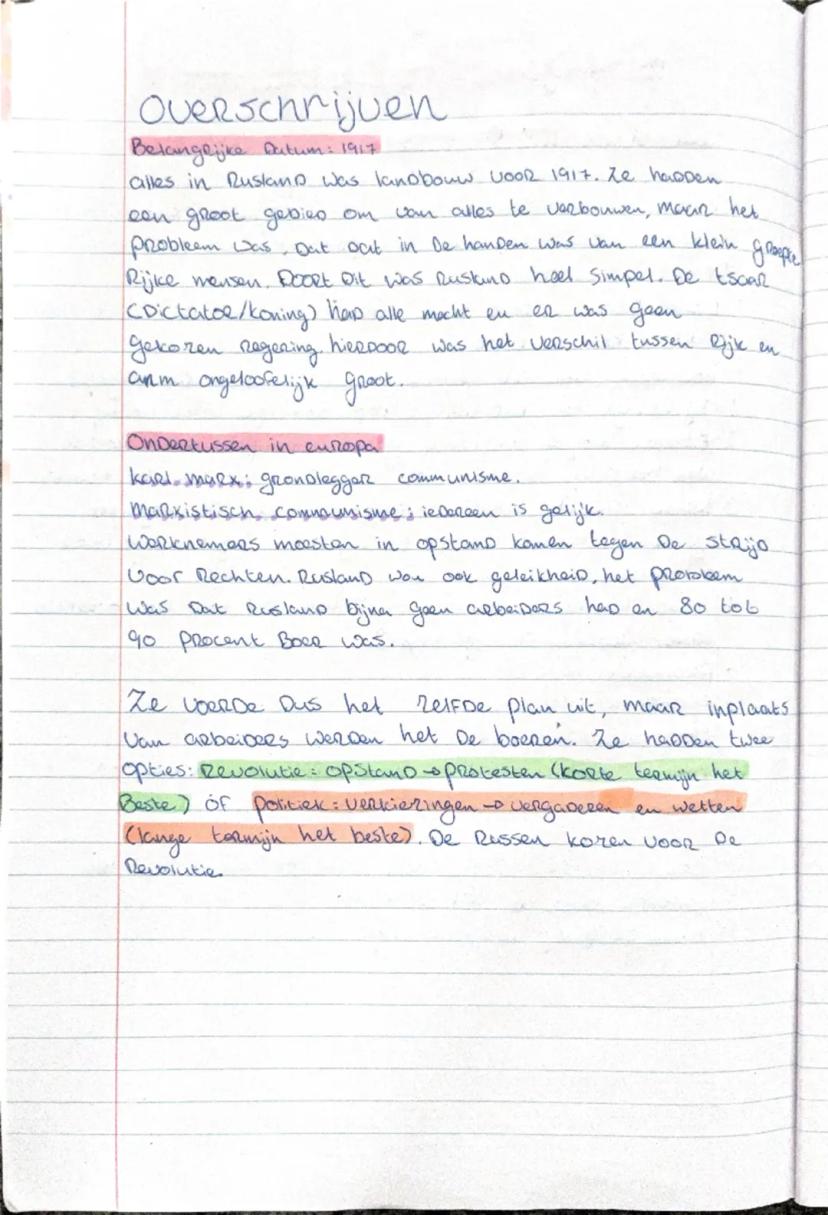 overschrijven
Belangrijke Datum: 1917
alles in Rusland was landbouw voor 1917. Ze hadden
een groot gebied om van alles te verbouwen, maar het
probleem was, dat dat in De handen was van een klein groepje
Rijke mensen. Doort Dit was Rusland heel simpel. De tsaar
(Dictator/koning) had alle macht en er was geen
gekozen regering. hierdoor was het verschil tussen Rijk en
arm ongeloofelijk groot.
Ondertussen in europa
karl marx: grondlegger communisme.
Marxistisch communisme: iedereen is gelijk.
Werknemers moesten in opstand komen tegen De strijd
voor Rechten. Rusland wou ook geleikheid, het probleem
was Dat Rusland bijna geen arbeiders had en 80 tot
90 procent Boer was.
Ze voerde Dus het zelfde plan uit, maar inplaats
van arbeiders werden het De boeren. Ze hadden twee
opties: Revolutie: opstand → protesten (korte termijn het
Beste) óf politiek: verkiezingen → vergaderen en wetten
(lange termijn het beste). De Russen kozen voor De
Revolutie.